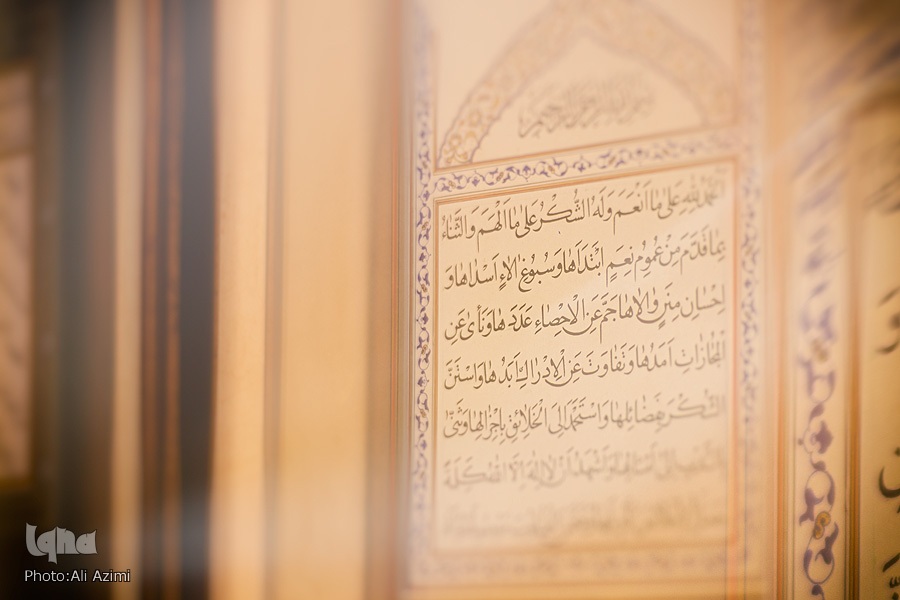 بسم الله الرحمن الرحیم
اَلْحَمْدُ لِلّٰهِ عَلىٰ ما اَنْعَمَ وَلَهُ الشُّكْرُ عَلىٰ ما اَلْهَمَ وَالثَّناءُ
بِما قَدَّمَ مِنْ عُمُومِ نِعَمٍ ابْتَدَاَها وَسُبُوغِ الاءٍ اَسْداها وَ
اِحْسانِ مِنَنٍ والاها جَمَّ عَنِ الْاِحْصاءِ عَدَدُها وَنَأىٰ عَنِ
الْمُجازاتِ اَمَدُها وَتَفاوَتَ عَنِ الْاِدْراكِ اَبَدُها وَاسْتَثَنَّ
الشُّكْرَ بِفَضائِلِها وَاسْتَحْمَدَ اِلَى الْخَلائِقِ بِاِجْزالِها وَثَنّىٰ
لا اِلٰهَ اِلَّا اللّٰهُ كَلِمَةٌ
Iqna
Photo:Ali Azimi